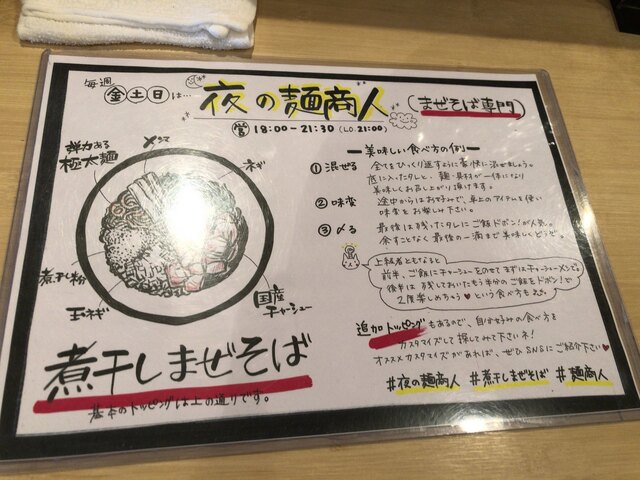 毎週
金土日は…
夜の麺商人
(まぜそば専門)
営 18:00-21:30 (L.O. 21:00)
弾力ある
極太麺
メンマ
ネギ
煮干し粉
玉ネギ
国産
チャーシュー
煮干しまぜそば
基本のトッピングは上の通りです。
ー美味しい食べ方の例ー
① 混ぜる
全てをひっくり返すように豪快に混ぜましょう。
底に入ったタレと、麺・具材が一体になり
美味しくお召し上がり頂けます。
② 味変
途中からはお好みで、卓上のアイテムを使い
味変をお楽しみ下さい。
③ 〆る
最後は残ったタレにご飯ドボン!が人気。
余すことなく最後の一滴まで美味しくどうぞ。
上級者ともなると
前半、ご飯にチャーシューをのせてまずはチャーシューメシで。
後半は残しておいたもう半分のご飯をドボン!で
2度楽しめちゃう♥という食べ方も…。
追加トッピングもあるので、自分好みの食べ方を
カスタマイズして探してみて下さいネ!
オススメカスタマイズがあれば、ぜひSNSにご紹介下さい♥
#夜の麺商人 #煮干しまぜそば #麺商人